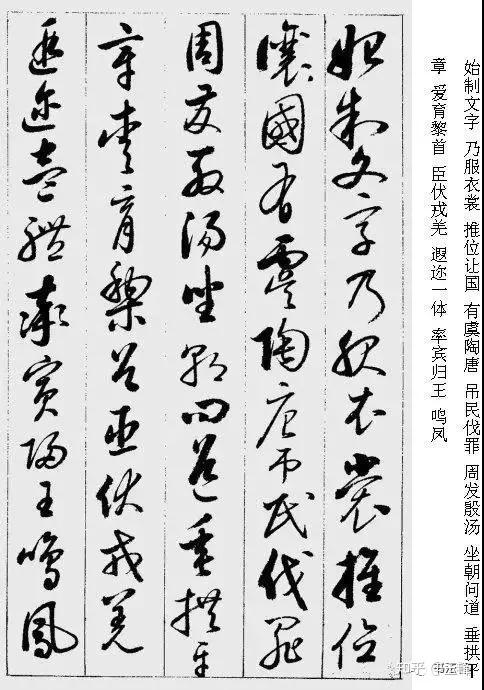 始制文字 乃服衣裳 推位让国 有虞陶唐 吊民伐罪 周发殷汤 坐朝问道 垂拱平
章 爱育黎首 臣伏戎羌 遐迩一体 率宾归王 鸣凤
始制文字乃服衣裳推位
讓國有虞陶唐吊民伐罪
周發殷湯坐朝問道垂拱平
章愛育黎首臣伏戎羌
遐迩壹體率賓歸王鳴鳳
知乎